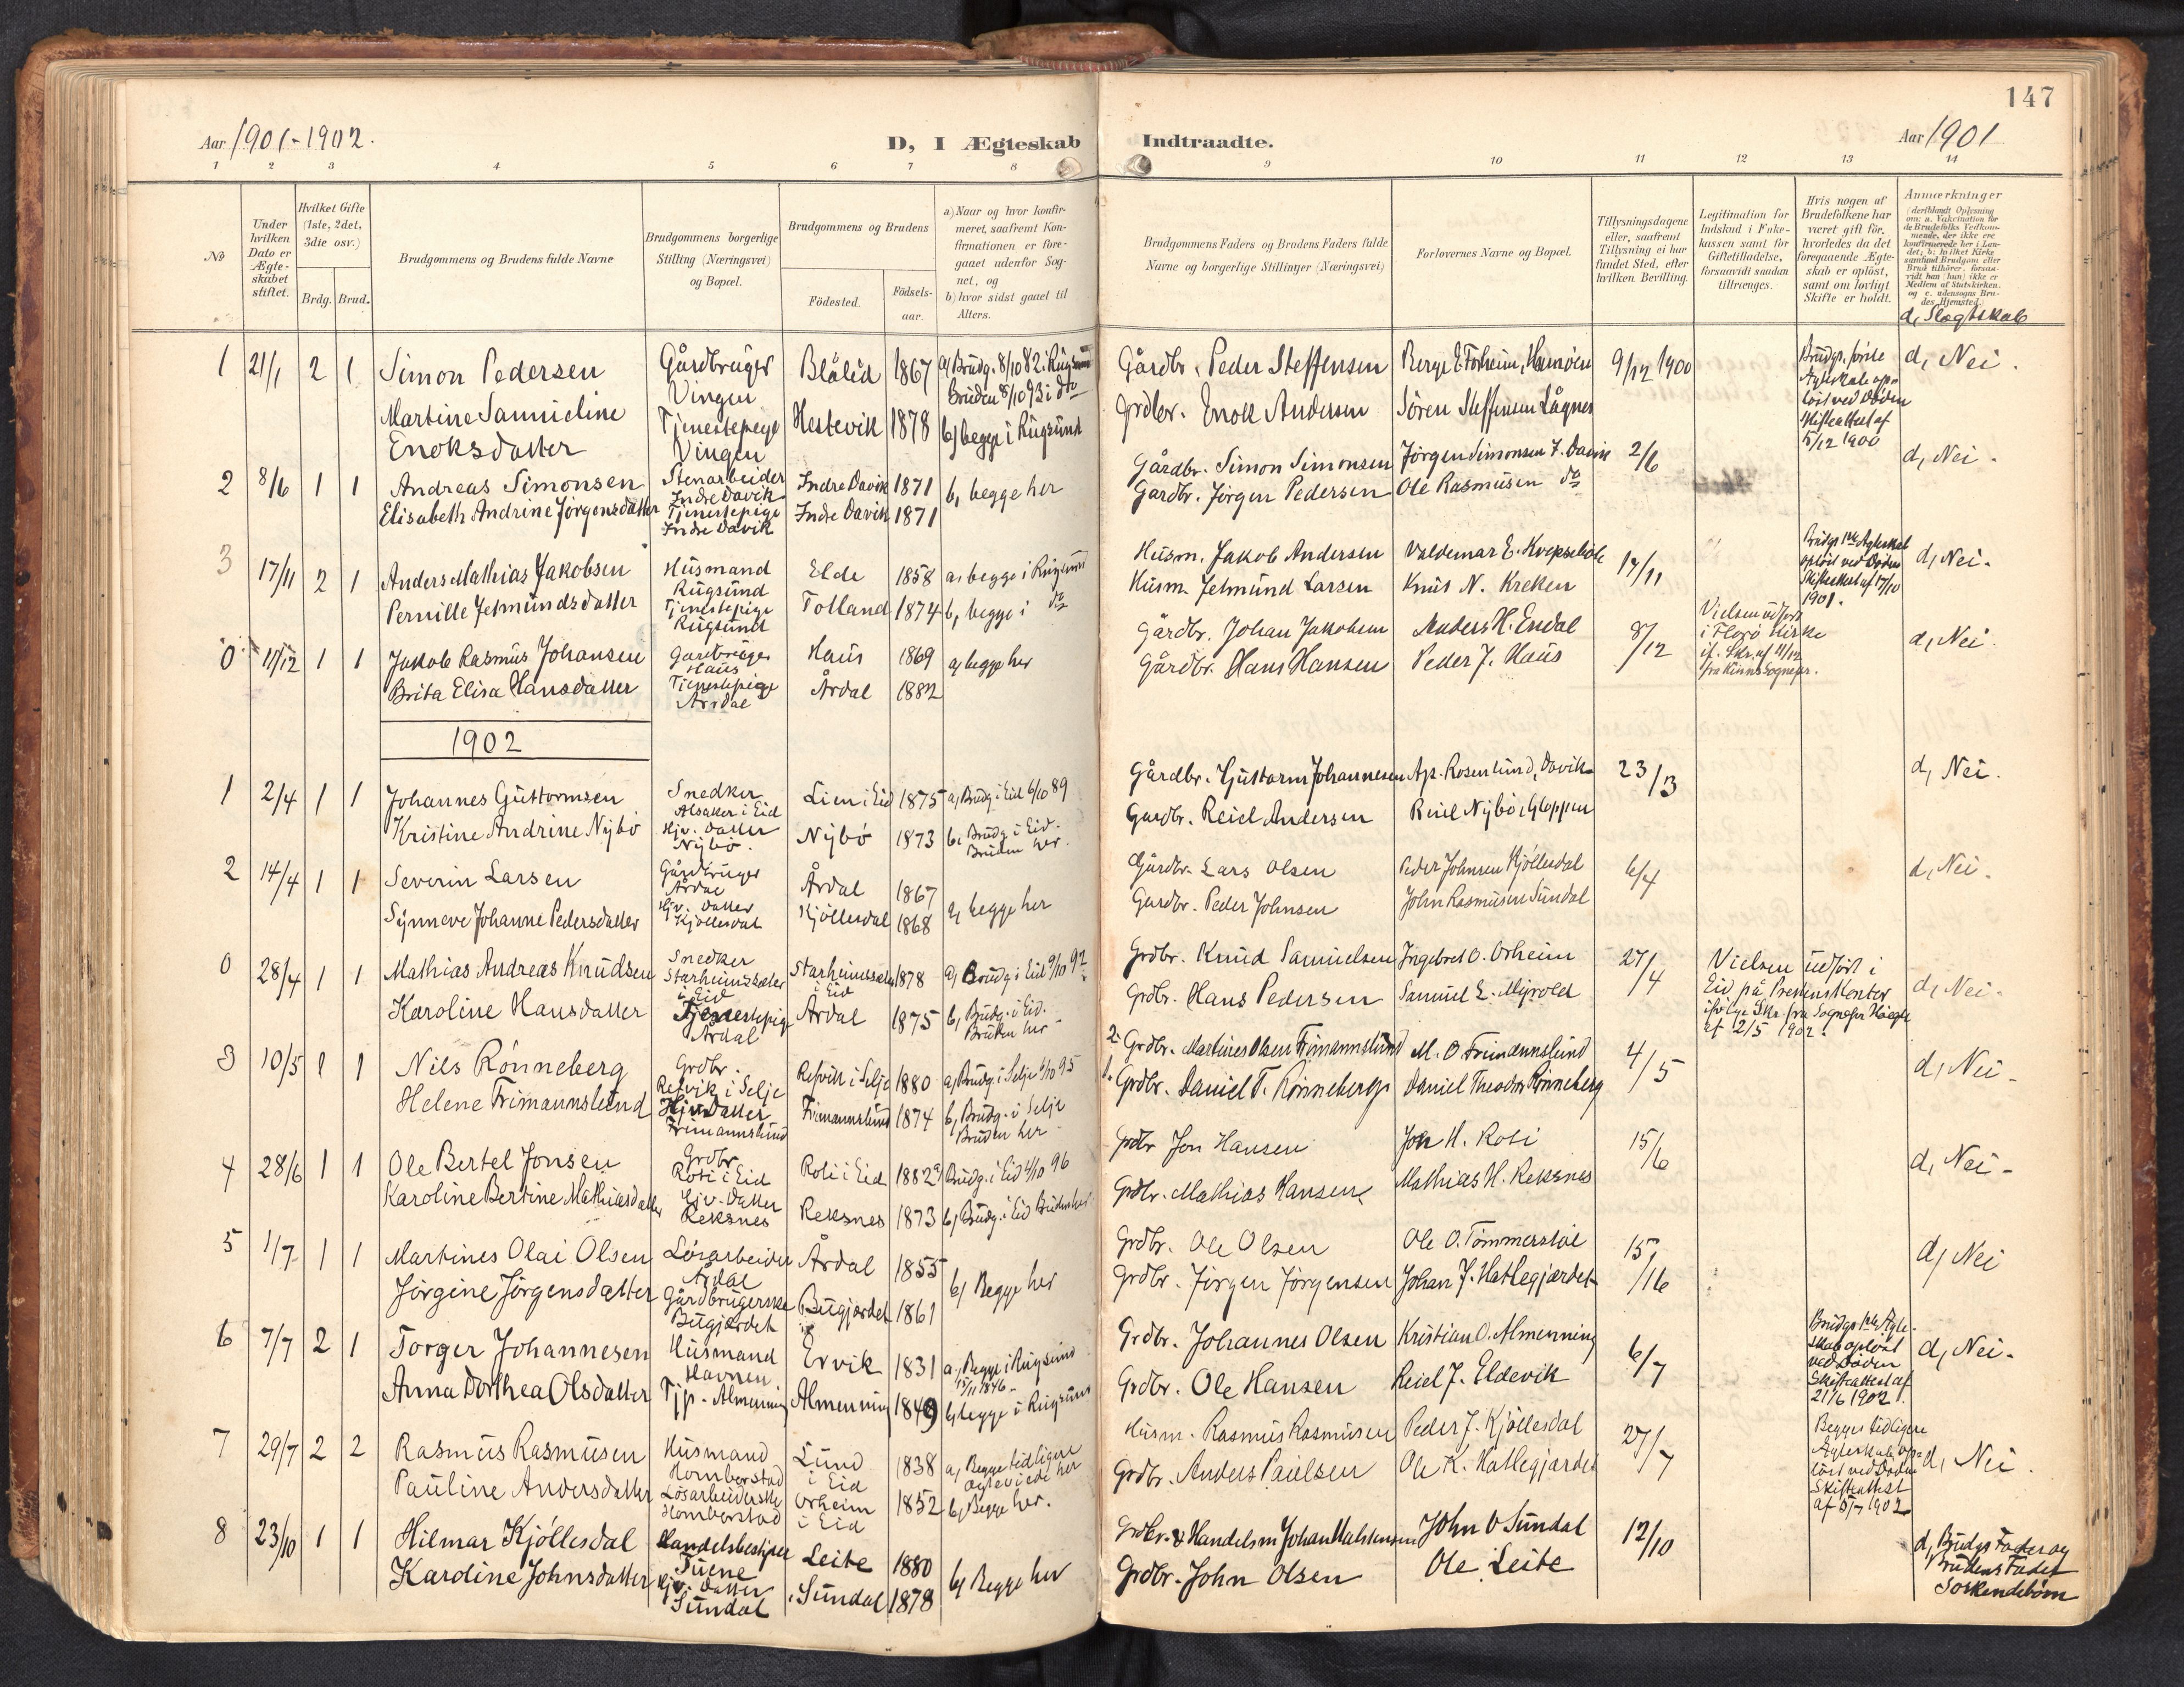 147
Aar 1901-1902.
D, I Ægteskab
Indtraadte.
Aar 1901
1 2 3 4 5 6 7 8 9 10 11 12 13 14
№
Under
hvilken
Dato er
Ægte-
skabet
stiftet.
Hvilket Gifte
(1ste, 2det,
3die osv.)
Brdg. Brud.
Brudgommens og Brudens fulde Navne
Brudgommens borgerlige
Stilling (Næringsvei)
og Bopæl.
Brudgommens og Brudens
Födested.
Födsels-
aar.
a) Naar og hvor konfir-
meret, saafremt Kon-
firmationen er fore-
gaaet udenfor Sog-
net, og
b) hvor sidst gaaet til
Alters.
Brudgommens Faders og Brudens Faders fulde
Navne og borgerlige Stillinger (Næringsvei)
Forlovernes Navne og Bopæl.
Tillysningsdagene
eller, saafremt
Tillysning ei har
fundet Sted, efter
hvilken Bevilling.
Legitimation for
Indskud i Enke-
kassen samt for
Giftetilladelse,
forsaavidt saadan
tiltrænges.
Hvis nogen af
Brudefolkene har
været gift för,
hvorledes da det
foregaaende Ægte-
skab er oplöst,
samt om lovligt
Skifte er holdt.
Anmærkninger
d, Slægtskab
1 21/1 2 1
Simon Pedersen
Martine Samueline
Enoksdatter
Gårdbruger
Vingen
Tjenestepige
Vingen
Blålid 1867
Hestevik 1878
a) Brudg. 8/10 82 i Rugsund
Bruden 8/10 93 i do
b) begge i Rugsund
Gårdbr. Peder Steffensen
Grdbr. Enok Andersen
Sören Steffensen Lågnes
9/12 1900
Brudgs. förste
Ægteskab op-
löst ved Döden
Skifteattest af
5/12 1900
d, Nei.
2 8/6 1 1
Andreas Simonsen
Elisabeth Andrine Jörgensdatter
Stenarbeider
Indre Davik
Tjenestepige
Indre Davik
Indre Davik 1871
Indre Davik 1871
b, begge her
Gårdbr. Simon Simonsen
Gårdbr. Jörgen Pedersen
Jörgen Simonsen I. Davik
Ole Rasmusen do
2/6
d, Nei.
3 17/11 2 1
Anders Mathias Jakobsen
Pernille Jetmundsdatter
Husmand
Rugsund
Tjenestepige
Rugsund
Elde 1858
Totland 1874
a, begge i Rugsund
b, begge i do
Husm. Jakob Andersen
Husm. Jetmund Larsen
Valdemar E.
Knut N. Kreken
17/11
Brudgs 1ste Ægteskab
oplöst ved Döden
Skifteattest af 17/10
1901.
d, Nei.
0 11/12 1 1
Jakob Rasmus Johansen
Brita Elisa Hansdatter
Gardbruger
Haus
Tjenestepige
Årdal
Haus 1869
Årdal 1882
a, begge her
Gårdbr. Johan Jakobsen
Gårdbr. Hans Hansen
Anders H. Endal
Peder J. Haus
8/12
Vielsen udfört
i Florö Kirke
if. Skr. af 11/12
fra Kinns Sognepr.
d, Nei.
1902
1 2/4 1 1
Johannes Guttormsen
Kristine Andrine Nybö
Snedker
Alsaker i Eid
Hjv. datter
Nybö.
Lien i Eid 1875
Nybö 1873
a, Brudg. i Eid 6/10 89
b, Brudg. i Eid.
Bruden her.
Gårdbr. Guttorm Johannesen
Gardbr. Reiel Andersen
Ap. Rosenlund, Davik
Reiel Nybö, Gloppen
23/3
d, Nei.
2 14/4 1 1
Severin Larsen
Synneve Johanne Pedersdatter
Gårdbruger
Årdal
Hjv. datter
Kjöllesdal
Årdal 1867
Kjöllesdal 1868
b, begge her
Gårdbr. Lars Olsen
Gardbr. Peder Johnsen
Peder Johnsen Kjöllesdal
John Rasmusen Sundal
6/4
d, Nei.
0 28/4 1 1
Mathias Andreas Knudsen
Karoline Hansdatter
Snedker
Starheimssæter
i Eid
Tjenestepige
Årdal
Starheimssæter 1878
i Eid
Årdal 1875
a) Brudg. i Eid 9/10 92
b, Brudg. i Eid.
Bruden her
Grdbr. Knud Samuelsen
Grdbr. Hans Pedersen
Ingebret O. Orheim
Samuel L. Myrold
27/4
Vielsen udfört i
Eid på Prestens Kontor
Skr. fra Sognepr.
af 2/5 1902.
d, Nei.
3 10/5 1 1
Nils Rönneberg
Helene Frimannslund
Grdbr.
Refvik i Selje
Hjv. Datter
Frimannslund
Refvik i Selje 1880
Frimannslund 1874
a, Brudg. i Selje 6/10 95
b, Brudg. i Selje
Bruden her
2. Grdbr. Martines Olsen Frimannslund
1. Grdbr. Daniel T. Rönneberg
M. O. Frimannslund
Daniel Theodor Rönneberg
4/5
d, Nei.
4 28/6 1 1
Ole Bertel Jonsen
Karoline Bertine Mathiasdatter
Grdbr.
Roti i Eid
Hjv. Datter
Reksnes
Roti i Eid 1882
Reksnes 1873
a) Brudg. i Eid 4/10 96
b) Brudg. i Eid Bruden her
Grdbr Jon Hansen
Grdbr. Mathias Hansen
Jon H. Roti
Mathias H. Reksnes
15/6
d, Nei.
5 1/7 1 1
Martines Olai Olsen
Jörgine Jörgensdatter
Lösarbeider
Årdal
Gårdbrugerske
Bugjærdet
Årdal 1855
Bugjærdet 1861
b) Begge her
Grdbr. Ole Olsen
Grdbr. Jörgen Jörgensen
Ole O. Tömmerstöl
Johan J. Hatlegjærdet
15/16
d, Nei
6 7/7 2 1
Torger Johannesen
Anna Dorthea Olsdatter
Husmand
Havnen
Tjp. Almenning
Ervik 1831
Almenning 1849
a, Begge i Rugsund
15/11 1846
b, begge i Rugsund
Grdbr. Johannes Olsen
Grdbr. Ole Hansen
Kristian O. Almenning
Reiel J. Eldevik
6/7
Brudgs 1ste Ægte-
skab oplöst
ved Döden
Skifteattest af
21/6 1902.
d, Nei.
7 29/7 2 2
Rasmus Rasmusen
Pauline Andersdatter
Husmand
Homborstad
Lösarbeiderske
Homborstad
Lund 1838
i Eid
Orheim 1852
i Eid
a, Begge tidligere
ægteviede her
b, Begge her.
Husm. Rasmus Rasmusen
Grdbr. Anders Paulsen
Peder J. Kjöllesdal
Ole K. Hatlegjærdet
27/7
Begges tidligere
Ægteskab op-
löst ved Döden
Skifteattest
af 5/7 1902
d, Nei.
8 23/10 1 1
Hilmar Kjöllesdal
Karoline Johnsdatter
Handelsbestyrer
Hjv. Datter
Sundal
Leite 1880
Sundal 1878
b) Begge her
Grdbr. & Handelsm Johan
Grdbr. John Olsen
John O Sundal
Ole Leite
12/10
d, Brudgs Fader og
Brudens Fader
Söskendebörn